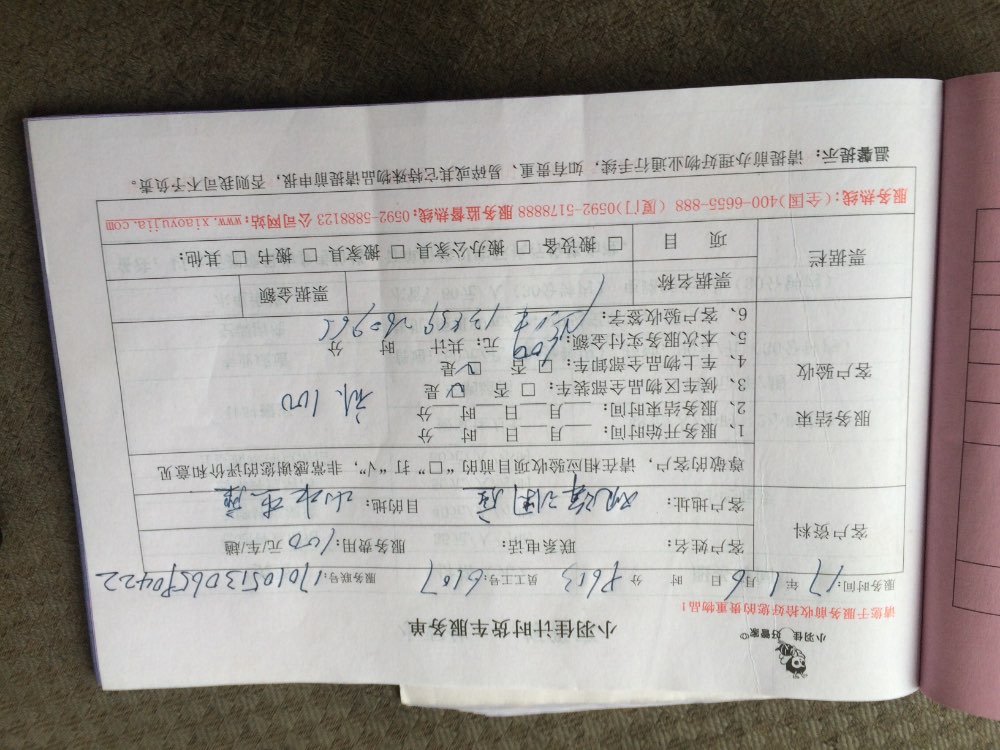 小羽佳 好管家
小羽佳计时货车服务单
请您于服务前收拾好您的贵重物品!
服务时间: 17 年 1 月 6 日 时 分 员工工号: 6107 服务联号: 
客户资料
客户姓名: 联系电话: 服务费用: 100 元/车/趟
客户地址: 目的地:
服务结束
客户验收
尊敬的客户,请在相应验收项目前的“□”打“√”,非常感谢您的评价和意见
1、服务开始时间: 月 日 时 分
2、服务结束时间: 月 日 时 分
3、候车区物品全部装车: □ 否 □ 是
4、车上物品全部卸车: □ 否 □ 是
5、本次服务实付金额: 100 元, 共计 时 分
6、客户验收签字:
100
票据栏
票据名称 票据金额
项 目 □ 搬设备 □ 搬办公家具 □ 搬家具 □ 搬书 □ 其他:
服务热线:(全国)400-6655-888 (厦门)0592-5178888 服务监督热线:0592-5888123 公司网站:www.xiaoyujia.com
温馨提示: 请提前办理好物业通行手续,如有贵重、易碎或其它特殊物品请提前申报,否则我司不予负责。